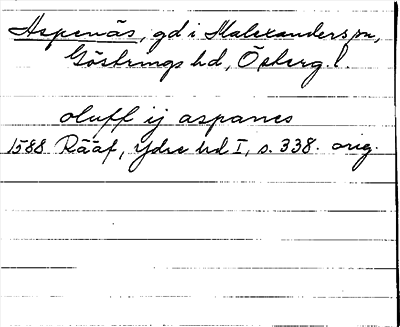 Aspenäs, gd i Malexanders sn,
Göstrings hd, Österg. l.
oluff ij aspanes
1588 Rääf, Ydre hd I, s. 338. orig.